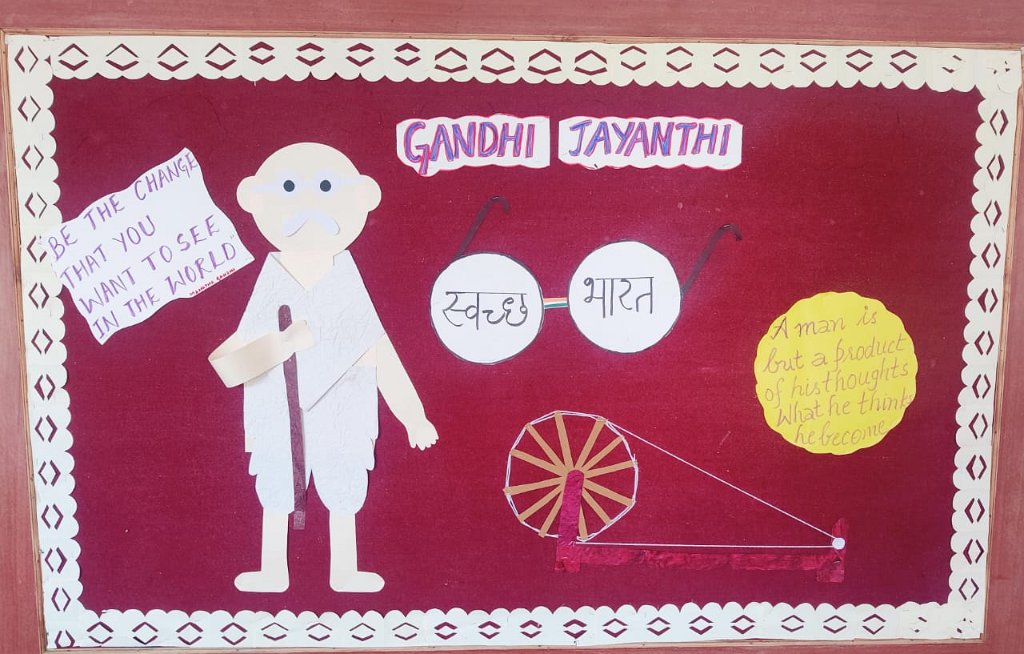 GANDHI JAYANTHI
"BE THE CHANGE
THAT YOU
WANT TO SEE
IN THE WORLD"
MAHATMA GANDHI
स्वच्छ
भारत
A man is
but a product
of his thoughts
What he thinks
he become